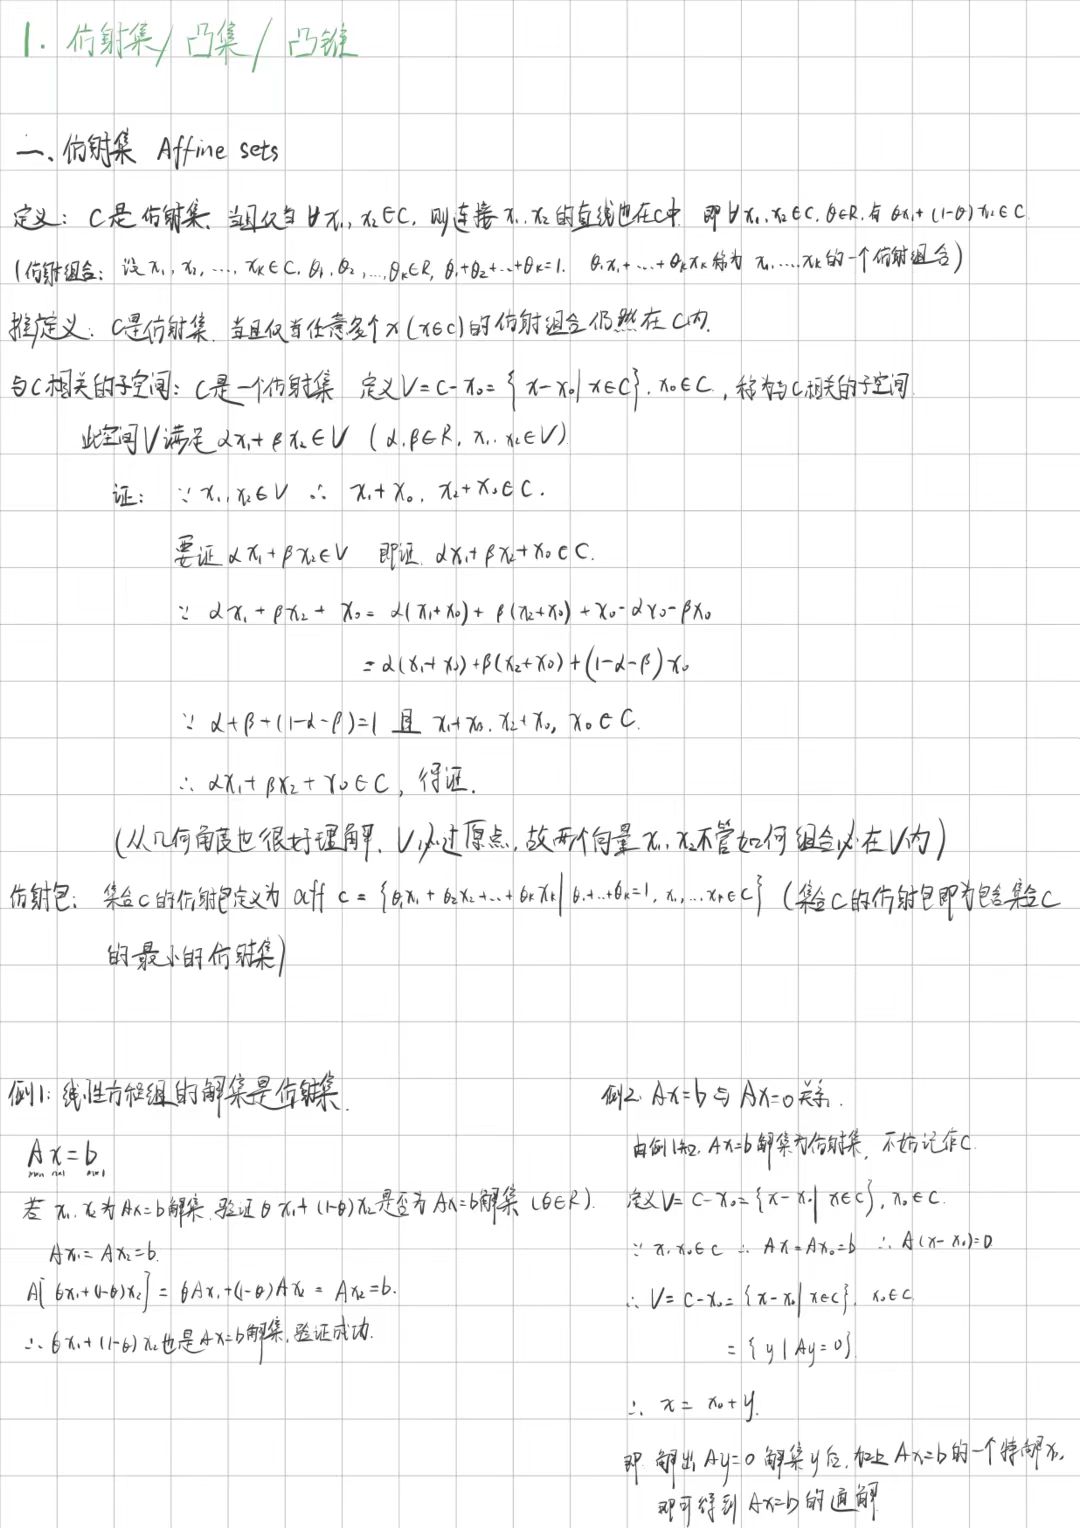 1. 仿射集/凸集/凸锥
一、仿射集 Affine sets
定义: C是仿射集, 当且仅当 ∀x₁, x₂∈C, 则连接 x₁, x₂的直线也在C中. 即∀x₁, x₂∈C, θ∈R, 有 θx₁+(1-θ)x₂∈C.
(仿射组合: 设 x₁, x₂, ..., xₖ∈C, θ₁, θ₂, ..., θₖ∈R, θ₁+θ₂+...+θₖ=1. θ₁x₁+...+θₖxₖ称为 x₁, ...xₖ的一个仿射组合)
推广定义: C是仿射集, 当且仅当任意多个x(x∈C)的仿射组合仍然在C内.
与C相关的子空间: C是一个仿射集 定义V=C-x₀={x-x₀|x∈C}, x₀∈C, 称为与C相关的子空间.
此空间V满足 αx₁+βx₂∈V (α,β∈R, x₁, x₂∈V)
证: ∵ x₁, x₂∈V ∴ x₁+x₀, x₂+x₀∈C.
要证αx₁+βx₂∈V 即证 αx₁+βx₂+x₀∈C.
∵ αx₁+βx₂+x₀=α(x₁+x₀)+β(x₂+x₀)+x₀-αx₀-βx₀
=α(x₁+x₀)+β(x₂+x₀)+(1-α-β)x₀
∵ α+β+(1-α-β)=1 且 x₁+x₀, x₂+x₀, x₀∈C.
∴ αx₁+βx₂+x₀∈C, 得证.
(从几何角度也很好理解, V必过原点, 故两个向量x₁, x₂不管如何组合必在V内)
仿射包: 集合C的仿射包定义为 aff C={θ₁x₁+θ₂x₂+...+θₖxₖ|θ₁+...+θₖ=1, x₁, ...xₖ∈C} (集合C的仿射包即为包含集合C
的最小的仿射集)
例1: 线性方程组的解集是仿射集.
Ax=b
m×n n×1 m×1
若 x₁, x₂为Ax=b解集, 验证θx₁+(1-θ)x₂是否为Ax=b解集 (θ∈R).
Ax₁=Ax₂=b.
A[θx₁+(1-θ)x₂]=θAx₁+(1-θ)Ax₂=Ax₂=b.
∴ θx₁+(1-θ)x₂也是Ax=b解集, 验证成功.
例2. Ax=b与Ax=0关系.
由例1知, Ax=b解集为仿射集, 不妨记作C.
定义V=C-x₀={x-x₀|x∈C}, x₀∈C.
∵ x, x₀∈C ∴ Ax=Ax₀=b ∴ A(x-x₀)=0
∴ V=C-x₀={x-x₀|x∈C}, x₀∈C
={y|Ay=0}.
∴ x=x₀+y.
即 解出Ay=0解集y后, 加上Ax=b的一个特解x₀,
即可得到Ax=b的通解